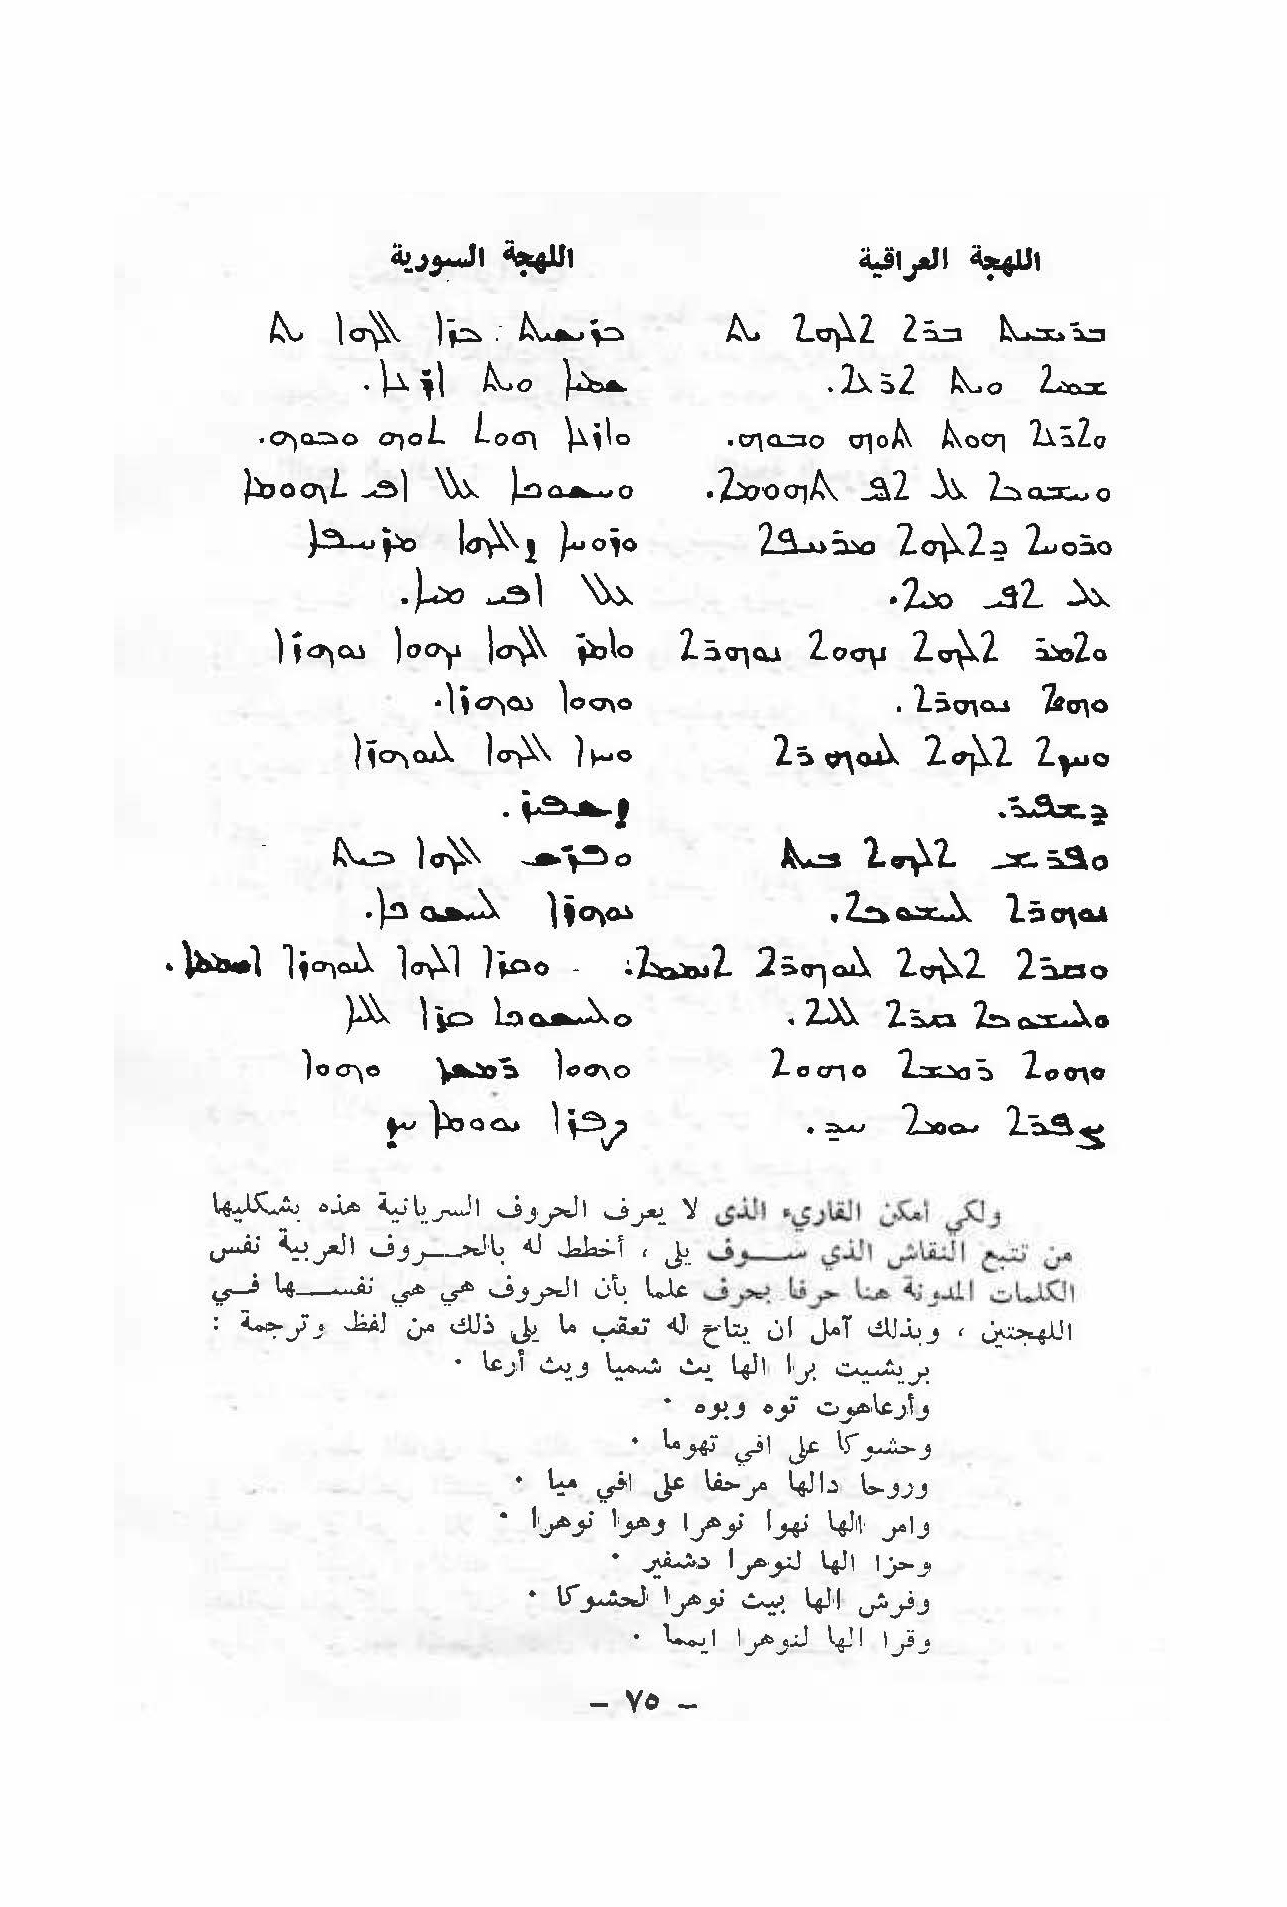 اللهجة العراقية
ܒܪܝܫܝܬ ܒܪܐ ܐܠܗܐ ܝܬ
ܫܡܝܐ ܘܝܬ ܐܪܥܐ.
ܘܐܪܥܐ ܗܘܬ ܬܘܗ ܘܒܘܗ.
ܘܚܫܘܟܐ ܥܠ ܐܦܝ ܬܗܘܡܐ.
ܘܪܘܚܐ ܕܐܠܗܐ ܡܪܚܦܐ
ܥܠ ܐܦܝ ܡܝܐ.
ܘܐܡܪ ܐܠܗܐ ܢܗܘܐ ܢܘܗܪܐ
ܘܗܘܐ ܢܘܗܪܐ.
ܘܚܙܐ ܐܠܗܐ ܠܢܘܗܪܐ
ܕܫܦܝܪ.
ܘܦܪܫ ܐܠܗܐ ܒܝܬ
ܢܘܗܪܐ ܠܚܫܘܟܐ.
ܘܩܪܐ ܐܠܗܐ ܠܢܘܗܪܐ ܐܝܡܡܐ:
ܘܠܚܫܘܟܐ ܩܪܐ ܠܠܝܐ.
ܘܗܘܐ ܪܡܫܐ ܘܗܘܐ
ܨܦܪܐ ܝܘܡܐ ܚܕ.
اللهجة السورية
ܒܪܝܫܝܬ : ܒܪܐ ܐܠܗܐ ܝܬ
ܫܡܝܐ ܘܝܬ ܐܪܥܐ.
ܘܐܪܥܐ ܗܘܬ ܬܘܗ ܘܒܘܗ.
ܘܚܫܘܟܐ ܥܠ ܐܦܝ ܬܗܘܡܐ
ܘܪܘܚܐ ܕܐܠܗܐ ܡܪܚܦܐ
ܥܠ ܐܦܝ ܡܝܐ.
ܘܐܡܪ ܐܠܗܐ ܢܗܘܐ ܢܘܗܪܐ
ܘܗܘܐ ܢܘܗܪܐ.
ܘܚܙܐ ܐܠܗܐ ܠܢܘܗܪܐ
ܕܫܦܝܪ.
ܘܦܪܫ ܐܠܗܐ ܒܝܬ
ܢܘܗܪܐ ܠܚܫܘܟܐ.
ܘܩܪܐ ܐܠܗܐ ܠܢܘܗܪܐ ܐܝܡܡܐ.
ܘܠܚܫܘܟܐ ܩܪܐ ܠܠܝܐ
ܘܗܘܐ ܪܡܫܐ ܘܗܘܐ
ܨܦܪܐ ܝܘܡܐ ܚܕ
ولكي امكن القاريء الذى لا يعرف الحروف السريانية هذه بشكليها
من تتبع النقاش الذي ســوف يلي ، أخطط له بالحــروف العربية نفس
الكلمات المدونة هنا حرفا بحرف علما بأن الحروف هي هي نفســها فــي
اللهجتين ، وبذلك آمل ان يتاح له تعقب ما يلي ذلك من لفظ وترجمة :
بريشيت برا الها يث شميا ويث أرعا ٠
وأرعاهوت توه وبوه ٠
وحشوكا على افي تهوما ٠
وروحا دالها مرحفا على افي ميا ٠
وامر الها نهوا نوهرا وهوا نوهرا ٠
وحزا الها لنوهرا دشفير ٠
وفرش الها بيث نوهرا لحشوكا ٠
وقرا الها لنوهرا ايمما ٠
– ٧٥ –